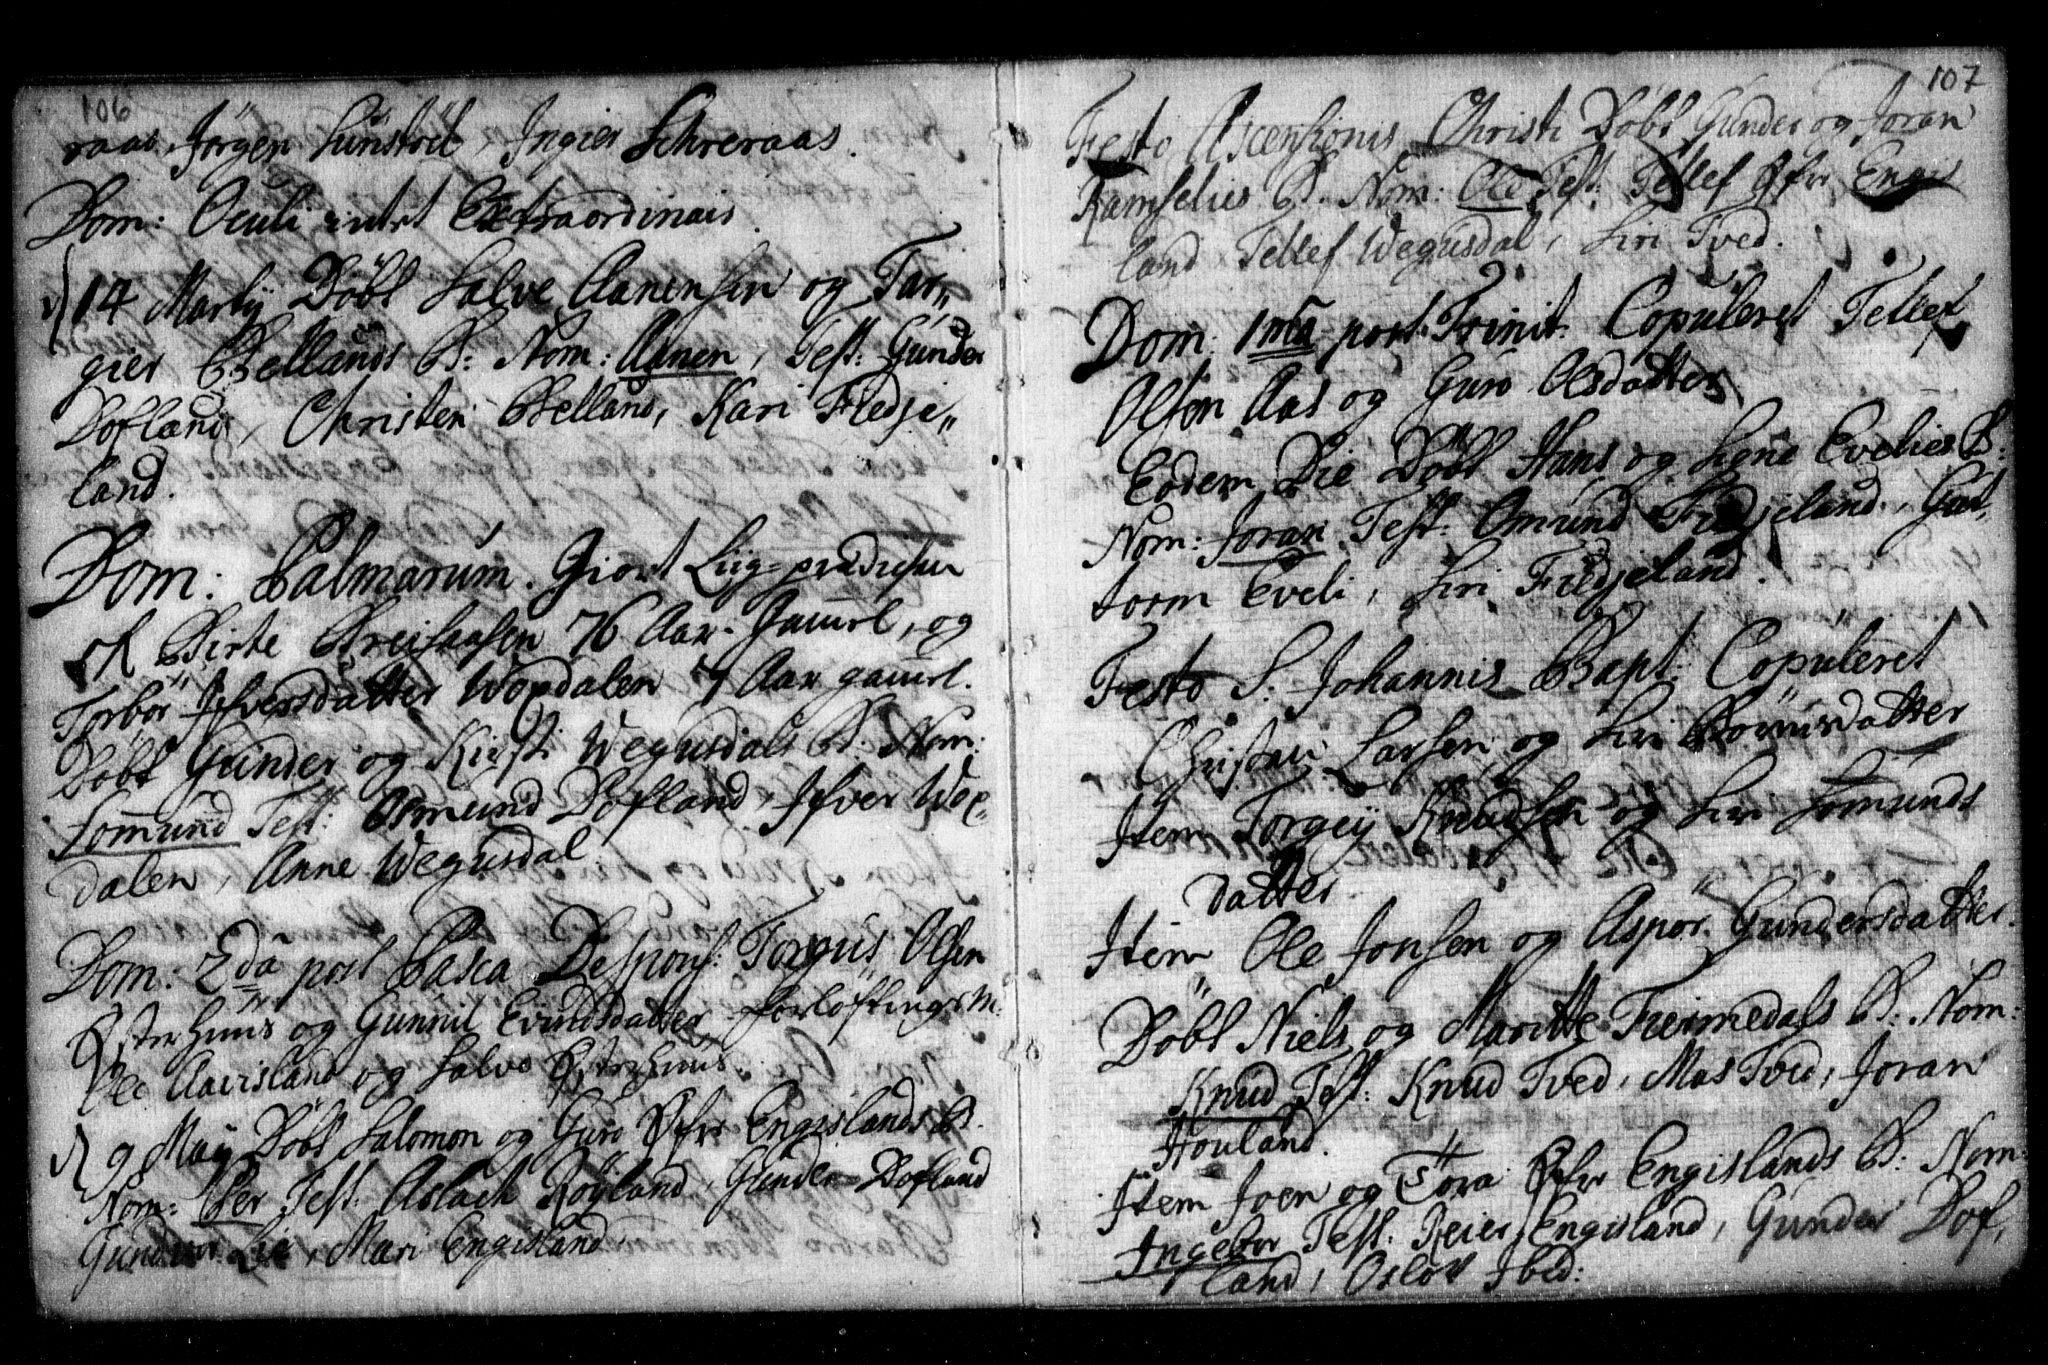 106
raas, Jørgen Sünstvet, Ingier Schreraas.
Dom: Oculi intet Extraordinair.
14 Martij Döbt Salve Aanensen og Tar„
gier Bellands B: Nom: Aanen, Test: Günder
Dofland, Christen Belland, Kari Fiedje„
land.
Dom: Palmarüm. Giort Liig-prædichen
Birte Breilaasen 76 Aar Gammel, og
Torbör Ifversdatter Woxdalen 7 Aar gammel.
Döbt Günder og Kirsti Wegüsdals B: Nom:
Somünd Test: Osmund Dofland, Ifver Wox-
dalen, Anne Wegüsdal.
Dom: 2da post Pasca Despons: Torgüs Olsen
Østerhuus og Gunnil Evindsdatter, forlöftings M:
Ole Aavisland og Salve Østerhuus.
9 Maij Döbt Salomon og Guro Øfre Engeslands B.
Nom: Per Test: Aslach Röyland, Gunder Dofland
Gunder Lie, Mari Engisland.
107
Festo Ascensionis Christi Döbt Günder og Joran
Ramselies B: Nom: Ole Test: Tellef Øfre Engis
land Tellef Wegusdal, Siri Tved.
Dom: 1ma post Trinit: Copuleret Tellef
Olsen Aas og Guro Olsdatter
Eodem Die Döbt Hans og Signe Evelies B:
Nom: Joran Test: Omund Fiedjeland, Gut,
torm Eveli, Siri Fiedjeland.
Festo S: Johannis Bapt: Copuleret
Christen Larsen og Siri
Item Torgey Knudsen og Siri Somunds
datter.
Item Ole Jonsen og Aspor Gündersdatter.
Döbt Niels og Maritte Fiermedals B: Nom:
Knud Test: Knud Tved, Mas Tved, Joran
Houland.
Item Joen og Tora Øfre Engislands B: Nom:
Ingebor Test: Reier Engisland, Günder Dof,
land, Oslov Ibid: